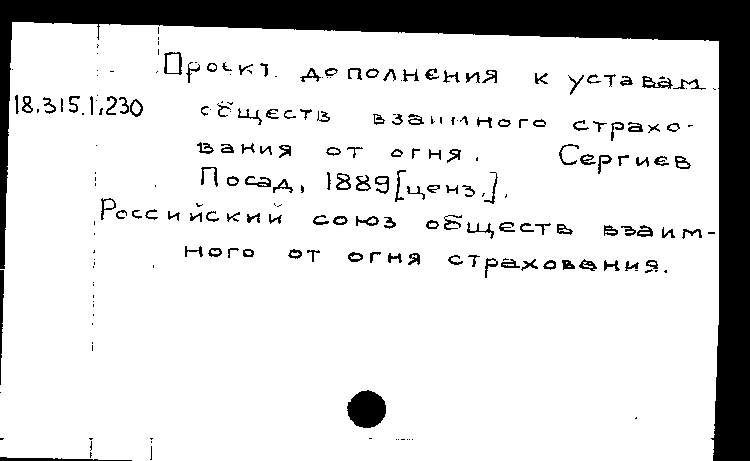 Проект дополнения к уставам
18.315.1.230 обществ взаимного страхо-
вания от огня. Сергиев
Посад, 1889 [ценз.].
Российский союз обществ взаим-
ного от огня страхования.